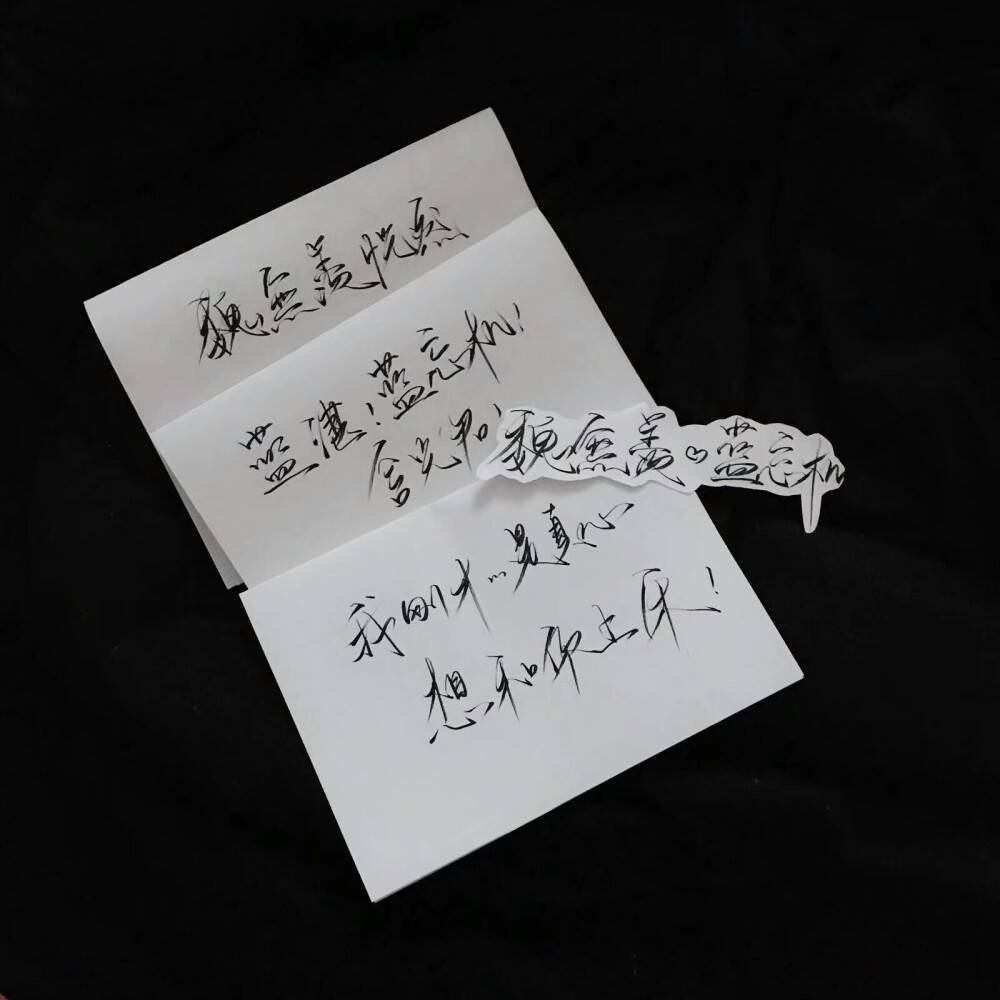 魏無羡恍然
蓝湛!蓝忘机!
含光君!
我刚才…是真心
想和你上床!
魏無羡♡蓝忘机